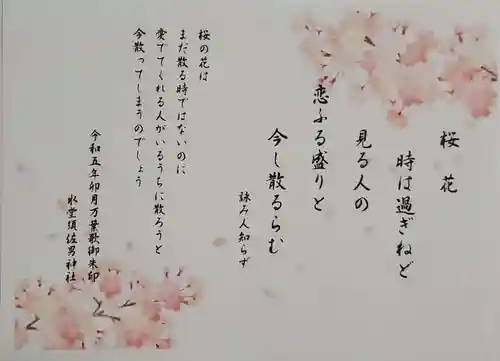 桜花
時は過ぎねど
見る人の
恋ふる盛りと
今し散るらむ
詠み人知らず
桜の花は
まだ散る時ではないのに
愛でてくれる人がいるうちに散ろうと
今散ってしまうのでしょう
令和五年卯月万葉歌御朱印
水堂須佐男神社